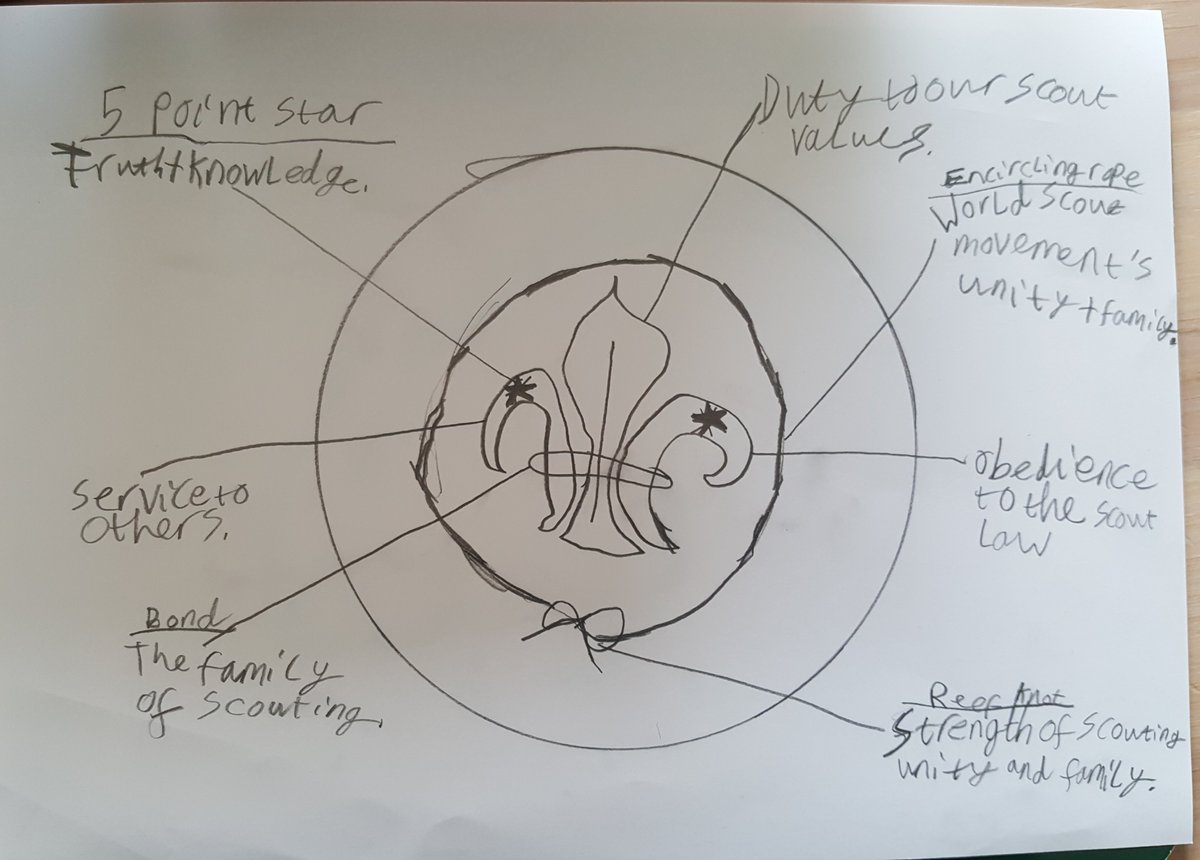 5 Point Star
Truth+Knowledge.
Duty to our scout
values.
Encircling rope
World Scout
movement's
unity+family.
Service to
others.
obedience
to the scout
Law
Bond
The family
of scouting.
Reef knot
Strength of scouting
unity and family.